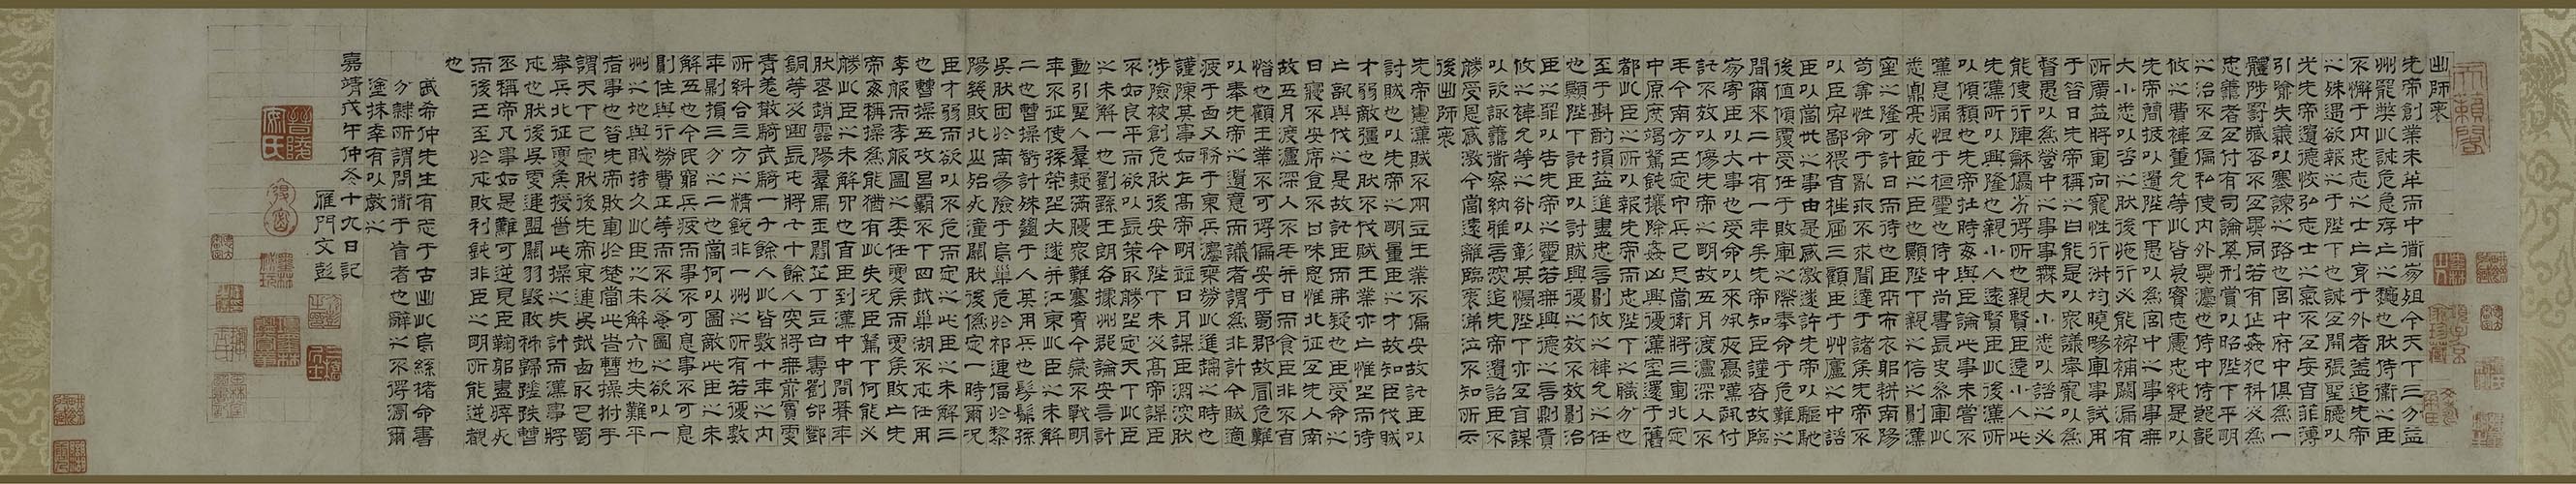 出師表
先帝創業未半而中道崩殂今天下三分益
州罷獘此誠危急存亡之穐也然侍衛之臣
不懈于內忠志之士亡身于外者蓋追先帝
之殊遇欲報之于陛下也誠宜開張聖聽以
光先帝遺德恢弘志士之氣不宜妄自菲薄
引喻失義以塞諫之路也宮中府中俱為一
體陟罰臧否不宜異同若有作姦犯科及為
忠善者宜付有司論其刑賞以昭陛下平明
之治不宜偏私使內外異灋也侍中侍郎郭
攸之費禕董允等此皆良實志慮忠純是以
先帝簡拔以遺陛下愚以為宮中之事事無
大小悉以咨之然後施行必能裨補闕漏有
所廣益將軍向寵性行淑均曉暢軍事試用
于昔日先帝稱之曰能是以衆議舉寵以為
督愚以為營中之事事無大小悉以諮之必
能使行陣龢優劣得所也親賢臣遠小人此
先漢所以興隆也親小人遠賢臣此後漢所
以傾頹也先帝在時每與臣論此事未嘗不
嘆息痛恨于桓靈也侍中尚書長史參軍此
悉貞亮死節之臣也願陛下親之信之則漢
室之隆可計日而待也臣本布衣躬耕南陽
苟全性命于亂世不求聞達于諸侯先帝不
以臣卑鄙猥自枉屈三顧臣于艸廬之中諮
臣以當世之事由是感激遂許先帝以驅馳
後值傾覆受任于敗軍之際奉命于危難之
間爾來二十有一年矣先帝知臣謹慎故臨
崩寄臣以大事也受命以來夙夜憂嘆恐付
託不效以傷先帝之明故五月渡瀘深入不
毛今南方已定甲兵已足當獎將三軍北定
中原庶竭駑鈍攘除姦凶興復漢室還于舊
都此臣之所以報先帝而忠陛下之職分也
至于斟酌損益進盡忠言則攸之禕允之任
也願陛下託臣以討賊興復之效不效則治
臣之罪以告先帝之靈若無興德之言則責
攸之禕允等之咎以彰其慢陛下亦宜自謀
以諮諏善道察納雅言深追先帝遺詔臣不
勝受恩感激今當遠離臨表涕泣不知所云
後出師表
先帝慮漢賊不兩立王業不偏安故託臣以
討賊也以先帝之明量臣之才故知臣伐賊
才弱敵彊也然不伐賊王業亦亡惟坐而待
亡孰與伐之是故託臣而弗疑也臣受命之
日寢不安席食不甘味思惟北征宜先入南
故五月渡瀘深入不毛并日而食臣非不自
惜也顧王業不可得偏安于蜀都故冒危難
以奉先帝之遺意而議者謂為非計今賊適
疲于西又務于東兵灋乘勞此進趨之時也
謹陳其事如左高帝明並日月謀臣淵深然
涉險被創危然後安今陛下未及高帝謀臣
不如良平而欲以長策取勝坐定天下此臣
之未解一也劉繇王朗各據州郡論安言計
動引聖人羣疑滿腹衆難塞胷今歲不戰明
年不征使孫策坐大遂并江東此臣之未解
二也曹操智計殊絕于人其用兵也髣髴孫
吳然困於南陽險于烏巢危於祁連偪於黎
陽幾敗北山殆死潼關然後偽定一時爾況
臣才弱而欲以不危而定之此臣之未解三
也曹操五攻昌霸不下四越巢湖不成任用
李服而李服圖之委任夏侯而夏侯敗亡先
帝每稱操為能猶有此失況臣駑下何能必
勝此臣之未解四也自臣到漢中中間朞年
然喪趙雲陽羣馬玉閻芝丁立白壽劉郃鄧
銅等及曲長屯將七十餘人突將無前賨叟
青羌散騎武騎一千餘人此皆數十年之內
所糾合三方之精銳非一州之所有若復數
年則損三分之二也當何以圖敵此臣之未
解五也今民窮兵疲而事不可息事不可息
則住與行勞費正等而不及蚤圖之欲以一
州之地與賊持久此臣之未解六也夫難平
者事也昔先帝敗軍於楚當此皆曹操拊手
謂天下已定然後先帝東連吳越西取巴蜀
舉兵北征夏侯授首此操之失計而漢事將
成也然後吳更違盟關羽毀敗秭歸蹉跌曹
丕稱帝凡事如是難可逆見臣鞠躬盡瘁死
而後已至於成敗利鈍非臣之明所能逆覩
也
武希仲先生有志于古出此烏絲楮命書
分隸所謂問道于盲者也辭之不得漫爾
塗抹幸有以教之
嘉靖戊午仲冬十九日記
雁門文彭